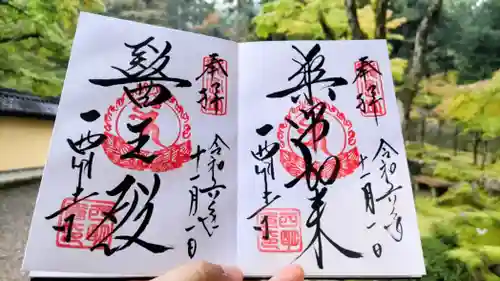 奉拝
令和六年
十一月一日
薬師如来
西明寺
奉拝
令和六年
十一月一日
醫王殿
西明寺